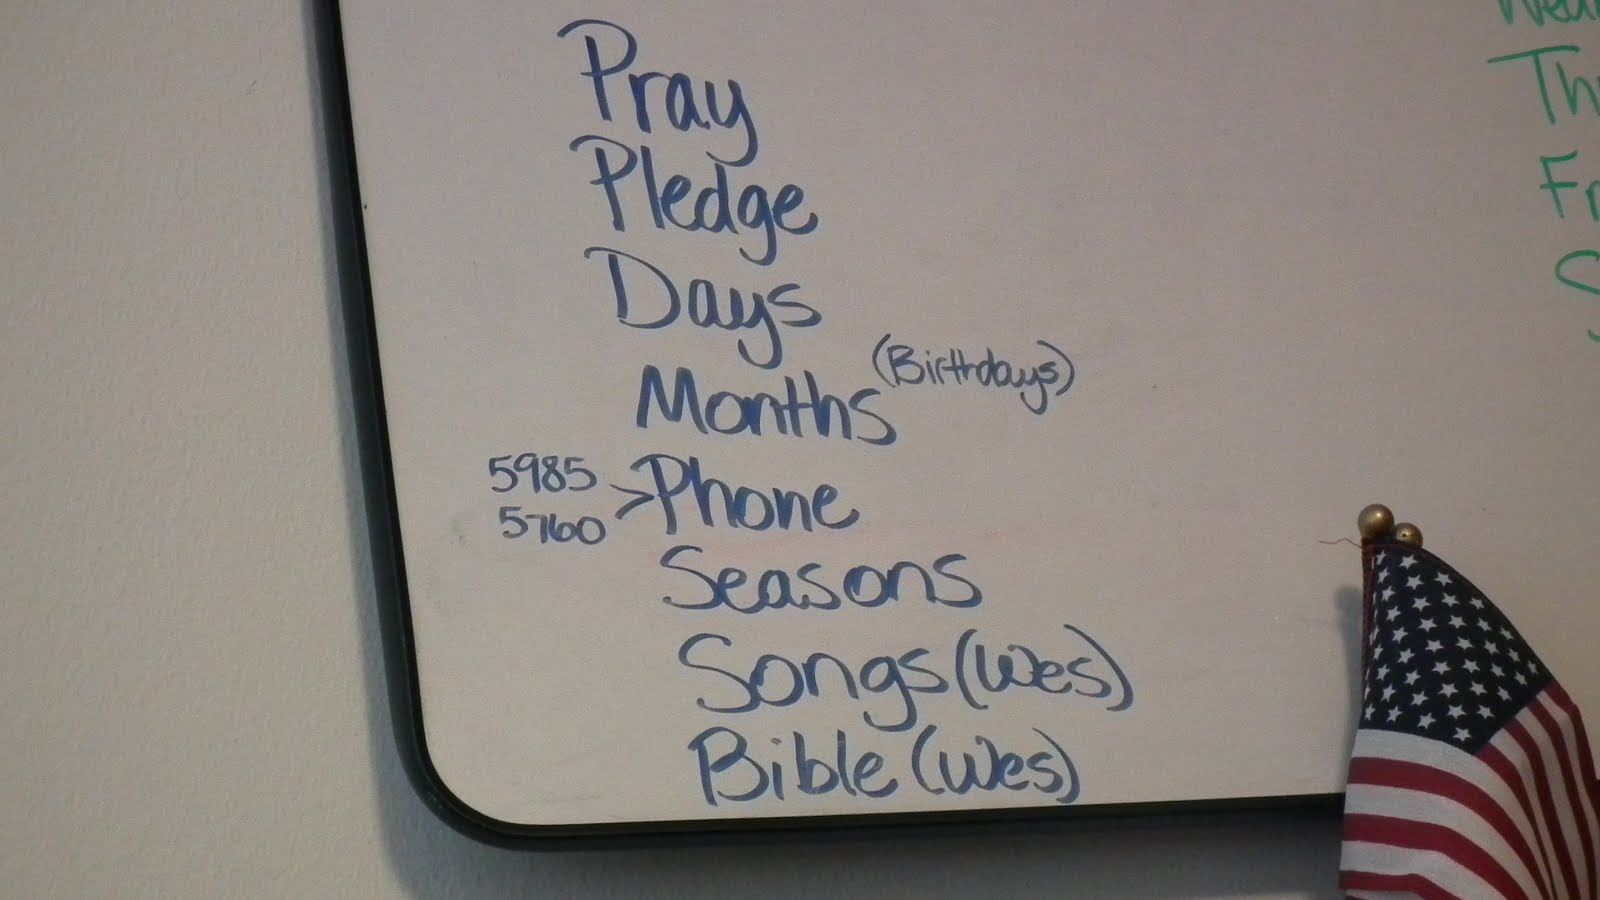 Pray
Pledge
Days
Months (Birthdays)
5985
5760 > Phone
Seasons
Songs (Wes)
Bible (Wes)